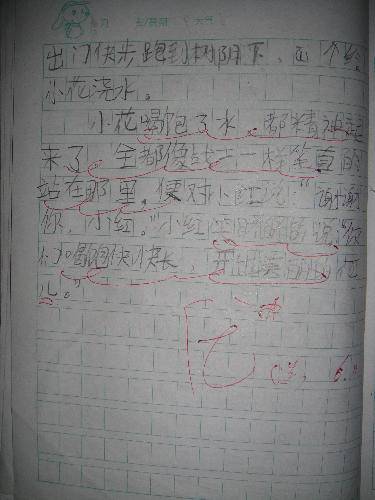 出门快步跑到树阴下,
小花浇水。
小花喝饱了水,都精神起
来了,全都像战士一样笔直的
站在那里,便对小红说:“谢谢
你,小红。”小红
们喝饱快快长,开出美丽的花
儿。”